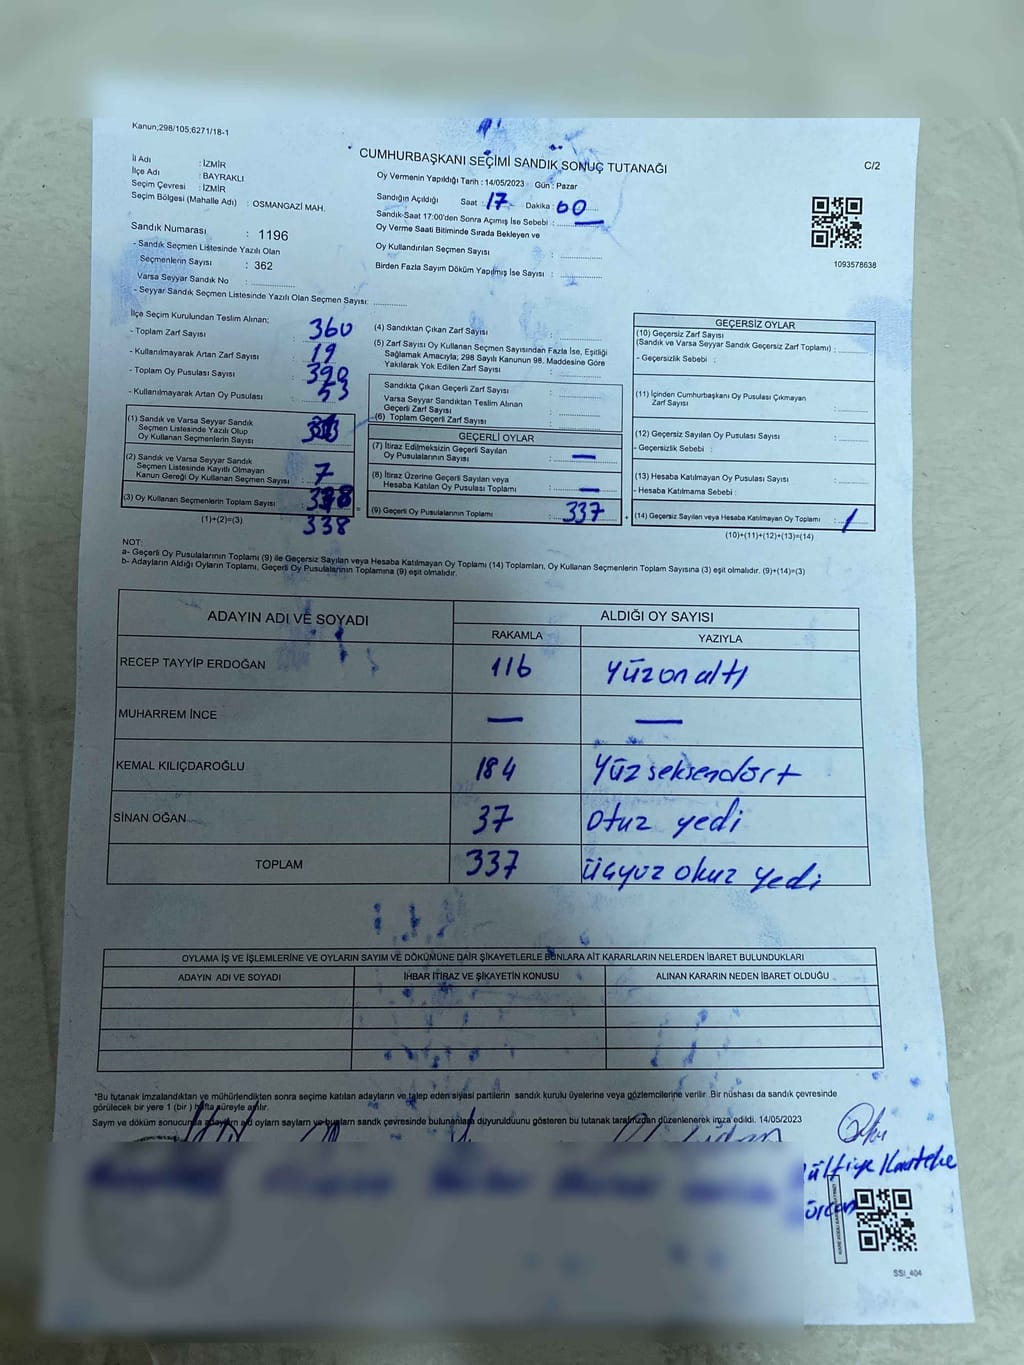 Kanun;298/105;6271/18-1
CUMHURBAŞKANI SEÇİMİ SANDIK SONUÇ TUTANAĞI
C/2
İl Adı : İZMİR
İlçe Adı : BAYRAKLI
Seçim Çevresi : İZMİR
Seçim Bölgesi (Mahalle Adı) : OSMANGAZİ MAH.
Sandık Numarası : 1196
- Sandık Seçmen Listesinde Yazılı Olan
Seçmenlerin Sayısı : 362
Varsa Seyyar Sandık No :
- Seyyar Sandık Seçmen Listesinde Yazılı Olan Seçmen Sayısı:
Oy Vermenin Yapıldığı Tarih : 14/05/2023 Gün : Pazar
Sandığın Açıldığı Saat : 17 Dakika : 00
Sandık Saat 17:00'den Sonra Açımış İse Sebebi : —
Oy Verme Saati Bitiminde Sırada Bekleyen ve
Oy Kullandırılan Seçmen Sayısı :
Birden Fazla Sayım Döküm Yapılmış İse Sayısı :
1093578638
İlçe Seçim Kurulundan Teslim Alınan;
- Toplam Zarf Sayısı : 360
- Kullanılmayarak Artan Zarf Sayısı : 19
- Toplam Oy Pusulası Sayısı : 390
- Kullanılmayarak Artan Oy Pusulası : 53
(1) Sandık ve Varsa Seyyar Sandık
Seçmen Listesinde Yazılı Olup
Oy Kullanan Seçmenlerin Sayısı
(2) Sandık ve Varsa Seyyar Sandık
Seçmen Listesinde Kayıtlı Olmayan
Kanun Gereği Oy Kullanan Seçmen Sayısı : 7
(3) Oy Kullanan Seçmenlerin Toplam Sayısı :
(1)+(2)=(3) 338
(4) Sandıktan Çıkan Zarf Sayısı :
(5) Zarf Sayısı Oy Kullanan Seçmen Sayısından Fazla İse, Eşitliği
Sağlamak Amacıyla; 298 Sayılı Kanunun 98. Maddesine Göre
Yakılarak Yok Edilen Zarf Sayısı :
Sandıkta Çıkan Geçerli Zarf Sayısı :
Varsa Seyyar Sandıktan Teslim Alınan
Geçerli Zarf Sayısı :
(6) Toplam Geçerli Zarf Sayısı :
GEÇERLİ OYLAR
(7) İtiraz Edilmeksizin Geçerli Sayılan
Oy Pusulalarının Sayısı : —
(8) İtiraz Üzerine Geçerli Sayılan veya
Hesaba Katılan Oy Pusulası Toplamı : —
(9) Geçerli Oy Pusulalarının Toplamı : 337
GEÇERSİZ OYLAR
(10) Geçersiz Zarf Sayısı
(Sandık ve Varsa Seyyar Sandık Geçersiz Zarf Toplamı) :
- Geçersizlik Sebebi :
(11) İçinden Cumhurbaşkanı Oy Pusulası Çıkmayan
Zarf Sayısı :
(12) Geçersiz Sayılan Oy Pusulası Sayısı :
- Geçersizlik Sebebi :
(13) Hesaba Katılmayan Oy Pusulası Sayısı :
- Hesaba Katılmama Sebebi :
(14) Geçersiz Sayılan veya Hesaba Katılmayan Oy Toplamı : 1
(10)+(11)+(12)+(13)=(14)
NOT:
a- Geçerli Oy Pusulalarının Toplamı (9) ile Geçersiz Sayılan veya Hesaba Katılmayan Oy Toplamı (14) Toplamları, Oy Kullanan Seçmenlerin Toplam Sayısına (3) eşit olmalıdır. (9)+(14)=(3)
b- Adayların Aldığı Oyların Toplamı, Geçerli Oy Pusulalarının Toplamına (9) eşit olmalıdır.
ADAYIN ADI VE SOYADI ALDIĞI OY SAYISI
RAKAMLA YAZIYLA
RECEP TAYYİP ERDOĞAN 116 yüzonaltı
MUHARREM İNCE — —
KEMAL KILIÇDAROĞLU 184 Yüzseksendört
SİNAN OĞAN 37 otuz yedi
TOPLAM 337 üçyüz okuz yedi
OYLAMA İŞ VE İŞLEMLERİNE VE OYLARIN SAYIM VE DÖKÜMÜNE DAİR ŞİKAYETLERLE BUNLARA AİT KARARLARIN NELERDEN İBARET BULUNDUKLARI
ADAYIN ADI VE SOYADI İHBAR İTİRAZ VE ŞİKAYETİN KONUSU ALINAN KARARIN NEDEN İBARET OLDUĞU
*Bu tutanak imzalandıktan ve mühürlendikten sonra seçime katılan adayların ve talep eden siyasi partilerin sandık kurulu üyelerine veya gözlemcilerine verilir. Bir nüshası da sandık çevresinde
görülecek bir yere 1 (bir ) hafta süreyle asılır.
Sayım ve döküm sonucunda adayların ad oyların sayıları ve bunların sandık çevresinde bulunanlara duyurulduunu gösteren bu tutanak tarafımızdan düzenlenerek imza edildi. 14/05/2023
SSI_404